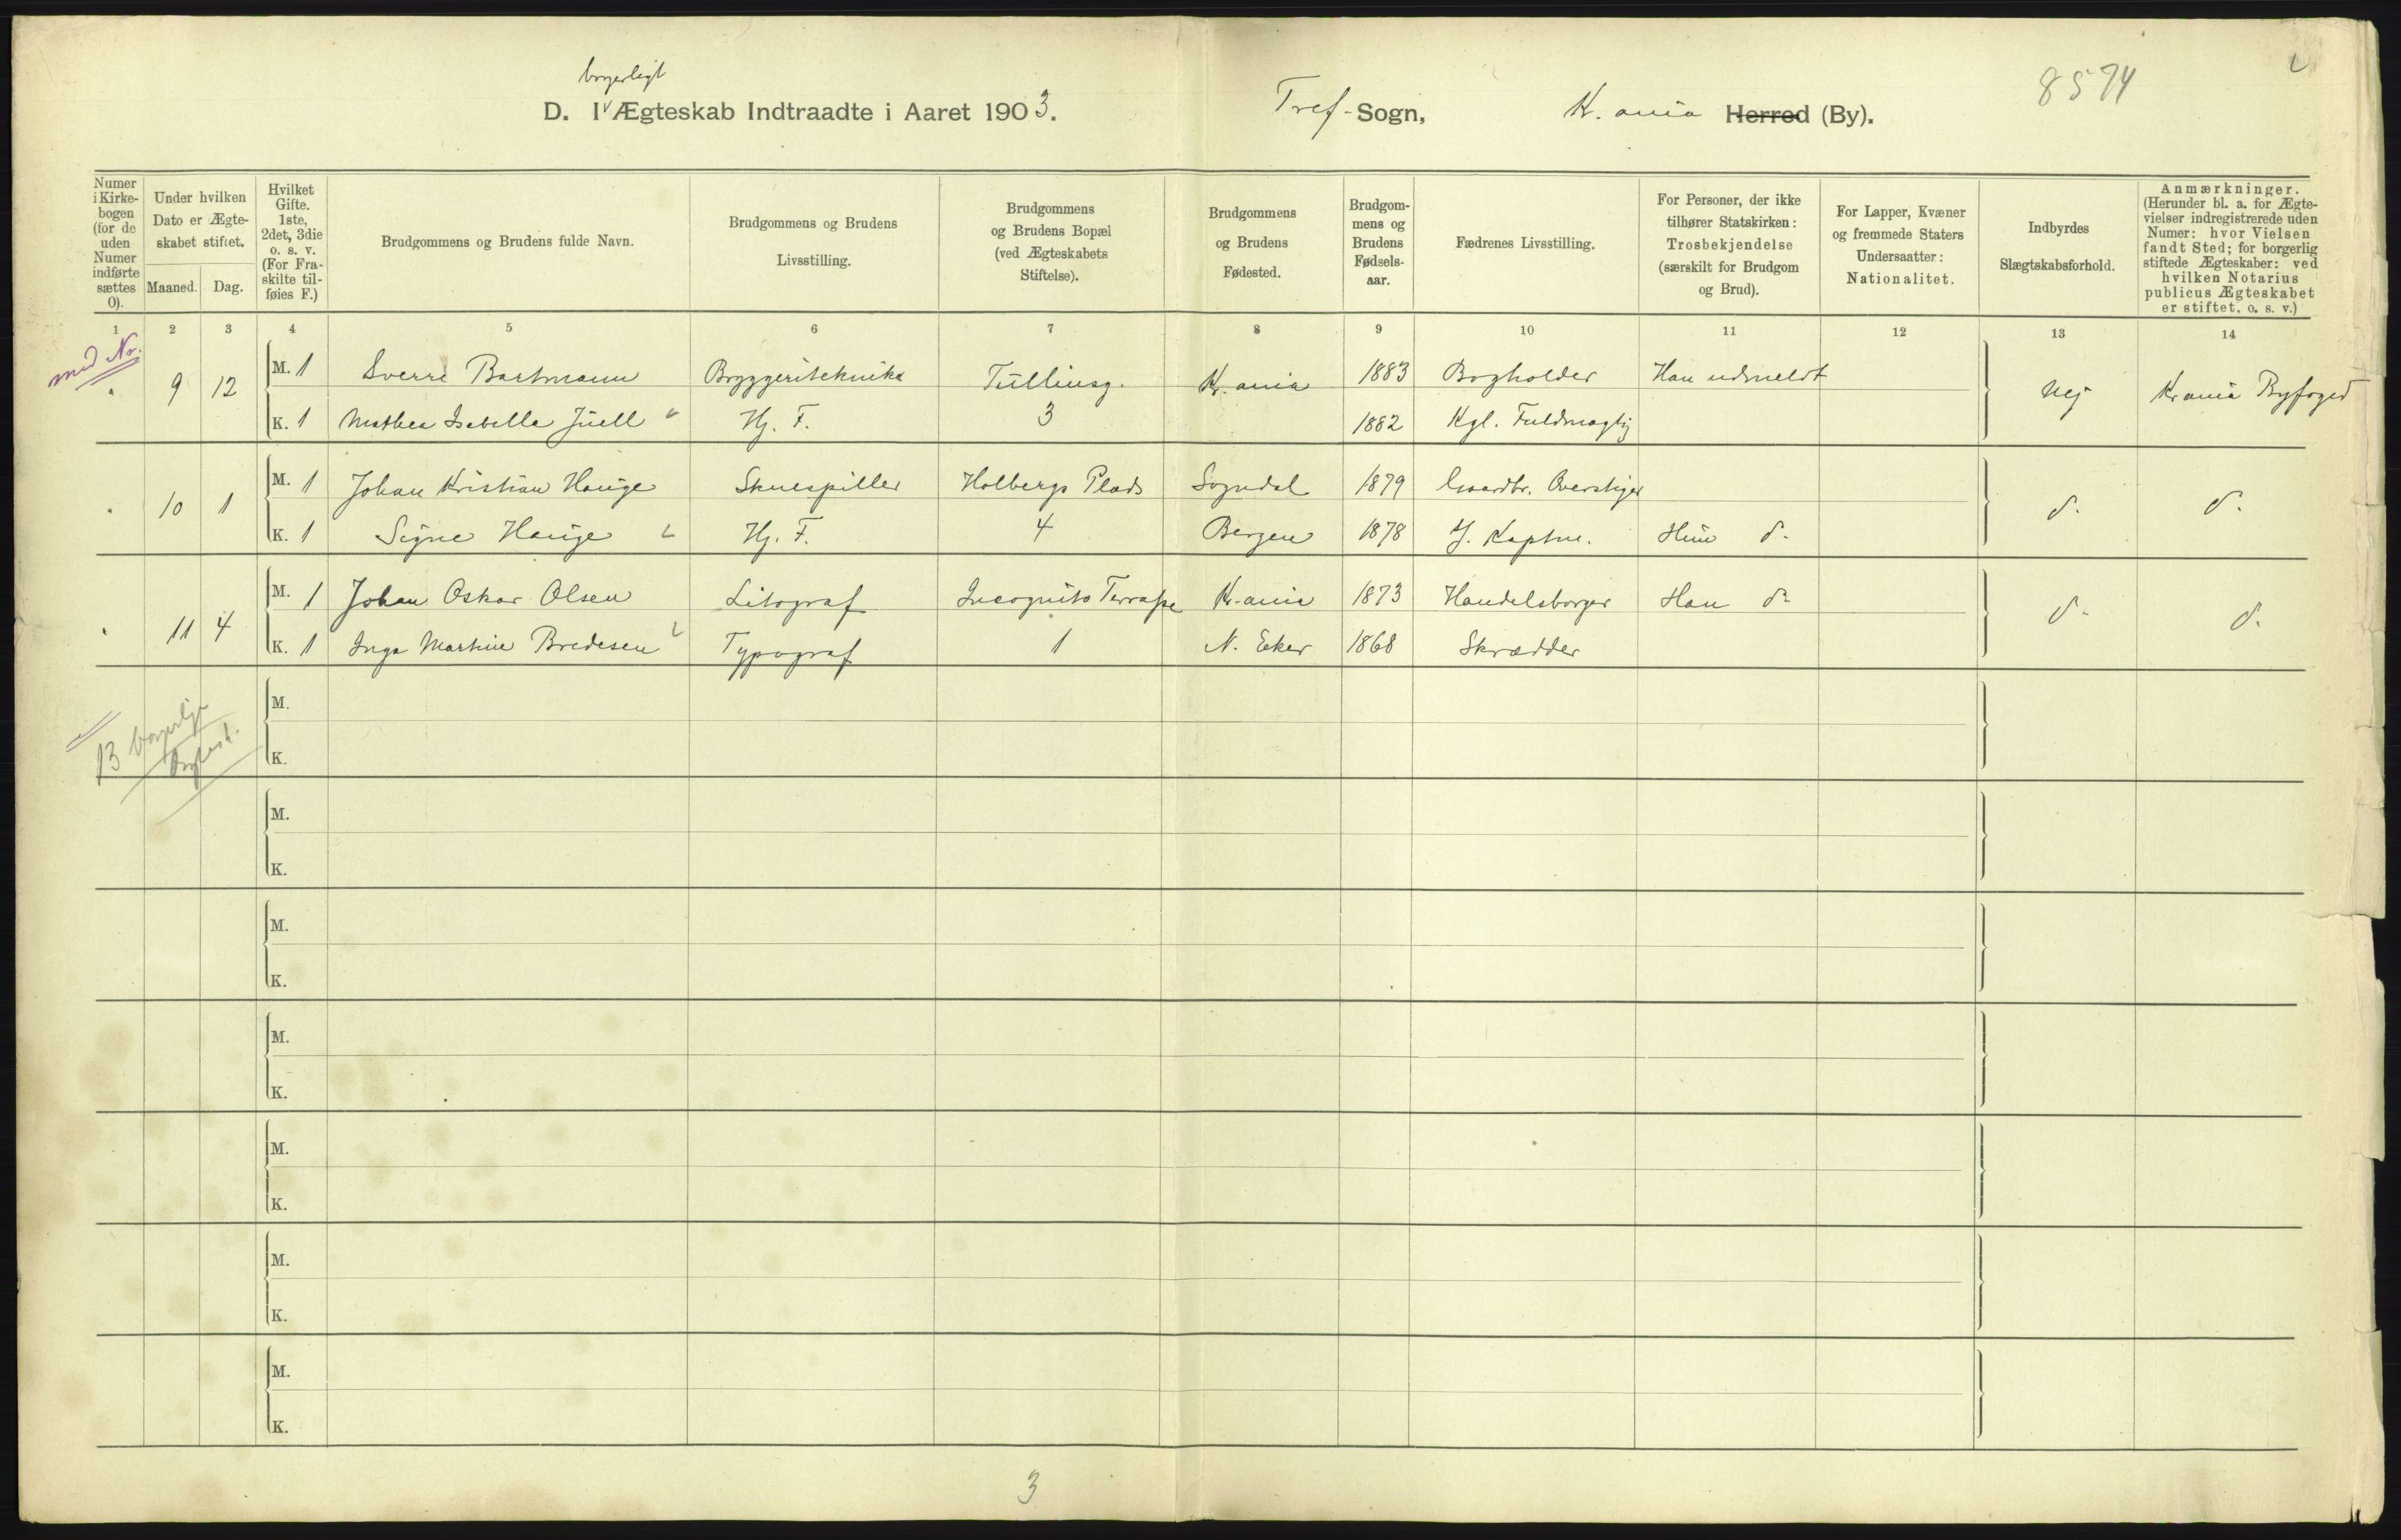 borgerligt
D. I Ægteskab Indtraadte i Aaret 1903. Tref-Sogn, Kr.ania Herred (By). 8574
Numer i Kirke-bogen (for de uden Numer indførte sættes 0).
Under hvilken Dato er Ægte-skabet stiftet.
Maaned. Dag.
Hvilket Gifte. 1ste, 2det, 3die o. s. v. (For Fra-skilte til-føies F.)
Brudgommens og Brudens fulde Navn.
Brudgommens og Brudens Livsstilling.
Brudgommens og Brudens Bopæl (ved Ægteskabets Stiftelse).
Brudgommens og Brudens Fødested.
Brudgom-mens og Brudens Fødsels-aar.
Fædrenes Livsstilling.
For Personer, der ikke tilhører Statskirken: Trosbekjendelse (særskilt for Brudgom og Brud).
For Lapper, Kvæner og fremmede Staters Undersaatter: Nationalitet.
Indbyrdes Slægtskabsforhold.
Anmærkninger. (Herunder bl. a. for Ægte-vielser indregistrerede uden Numer: hvor Vielsen fandt Sted; for borgerlig stiftede Ægteskaber: ved hvilken Notarius publicus Ægteskabet er stiftet, o. s. v.)
1 2 3 4 5 6 7 8 9 10 11 12 13 14
med Nr.
9 12 M. 1 Sverre Bartmann Bryggeritekniker Tullinsg. Kr.ania 1883 Bogholder Han udmeldt Nej Kr.ania Byfoged
K. 1 Mathea Isabella Juell Hj. F. 3 1882 Kgl. Fuldmægtig
10 1 M. 1 Johan Kristian Hauge Skuespiller Holbergs Plads Sogndal 1879 Gaardbr. d. d.
K. 1 Signe Hauge Hj. F. 4 Bergen 1878 Kaptn. Hun d.
11 4 M. 1 Johan Oskar Olsen Litograf Incognito Terrasse Kr.ania 1873 Handelsborger Han d. d. d.
K. 1 Inga Martine Bredesen Typograf 1 N. Eker 1868 Skrædder
M.
13 borgerlige
K.
M.
K.
M.
K.
M.
K.
M.
K.
M.
K.
M.
K.
3